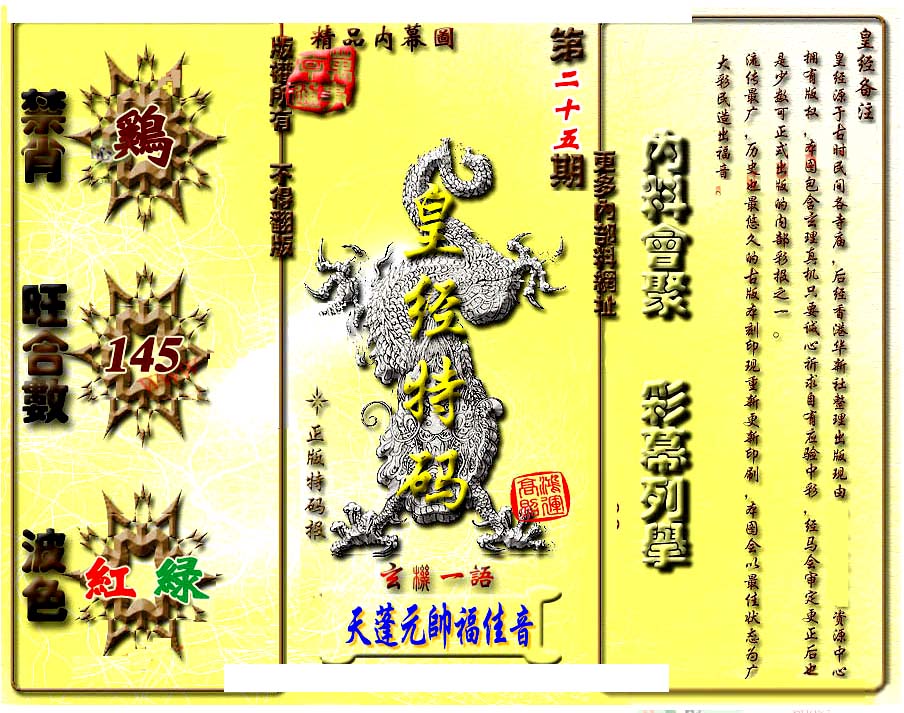 皇经备注
皇经源于古时民间各寺庙，后经香港华新社整理出版现由 资源中心
拥有版权，本图包含玄理真机只要诚心祈求自有应验中彩，经马会审定更正后也
是少数可正式出版的内部彩报之一。
流传最广，历史也最悠久的古版本刻印现重新更新印刷，本图会以最佳状态为广
大彩民造出福音
内料會聚 彩幕列學
更多內部料網址
第二十五期
精品内幕圖
皇经特码
正版特码报
鴻運高照
玄機一語
天蓬元帥福佳音
版權所有 不得翻版
禁肖
鷄
旺合數
145
波色
紅 綠